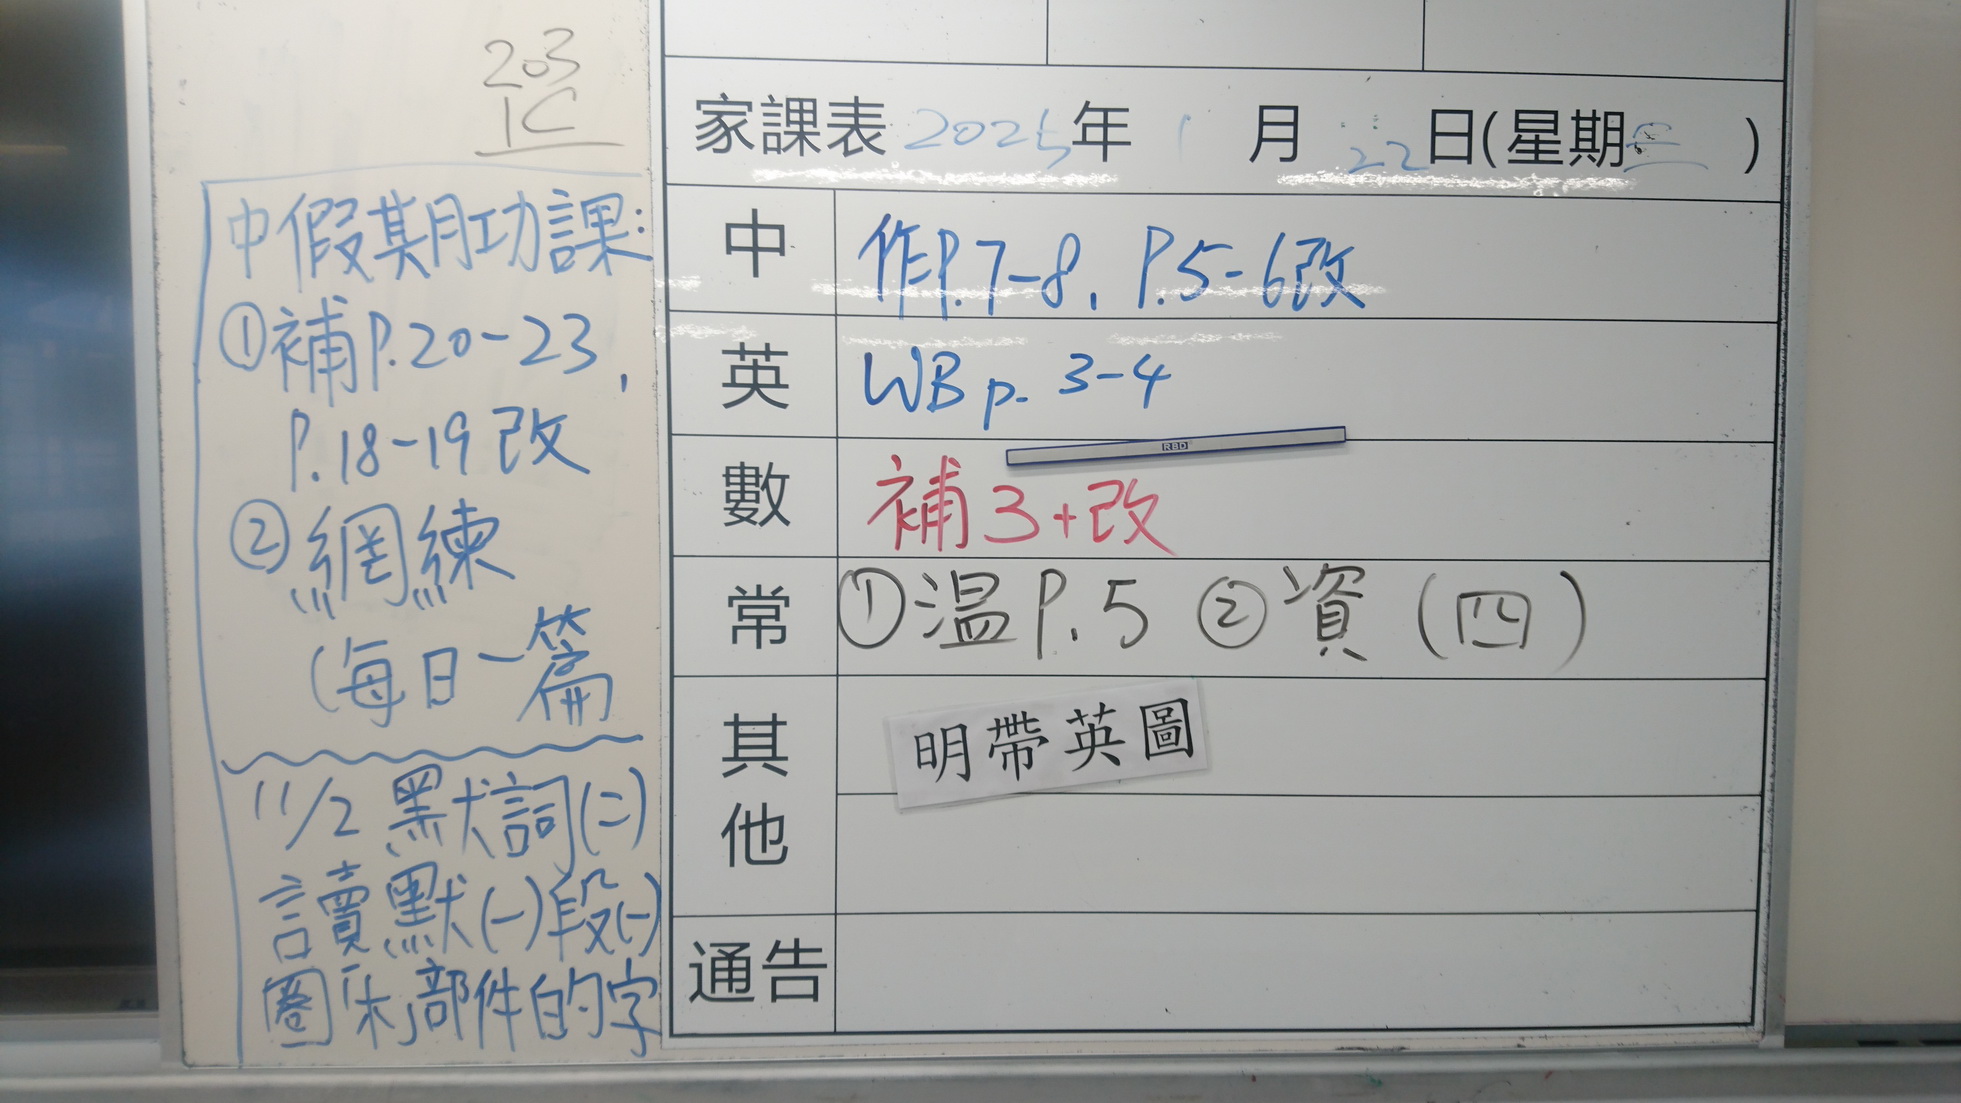 203
1C
中假期功課：
①補P.20-23，
P.18-19改
②網練
(每日一篇
11/2 默詞(二)
讀默(一)段(一)
圈「木」部件的字
家課表 2025年 1 月 22日(星期三)
中 作P.7-8, P.5-6改
英 WB p. 3-4
RBD
數 補3+改
常 ①温P.5 ②資(四)
其他 明帶英圖
通告